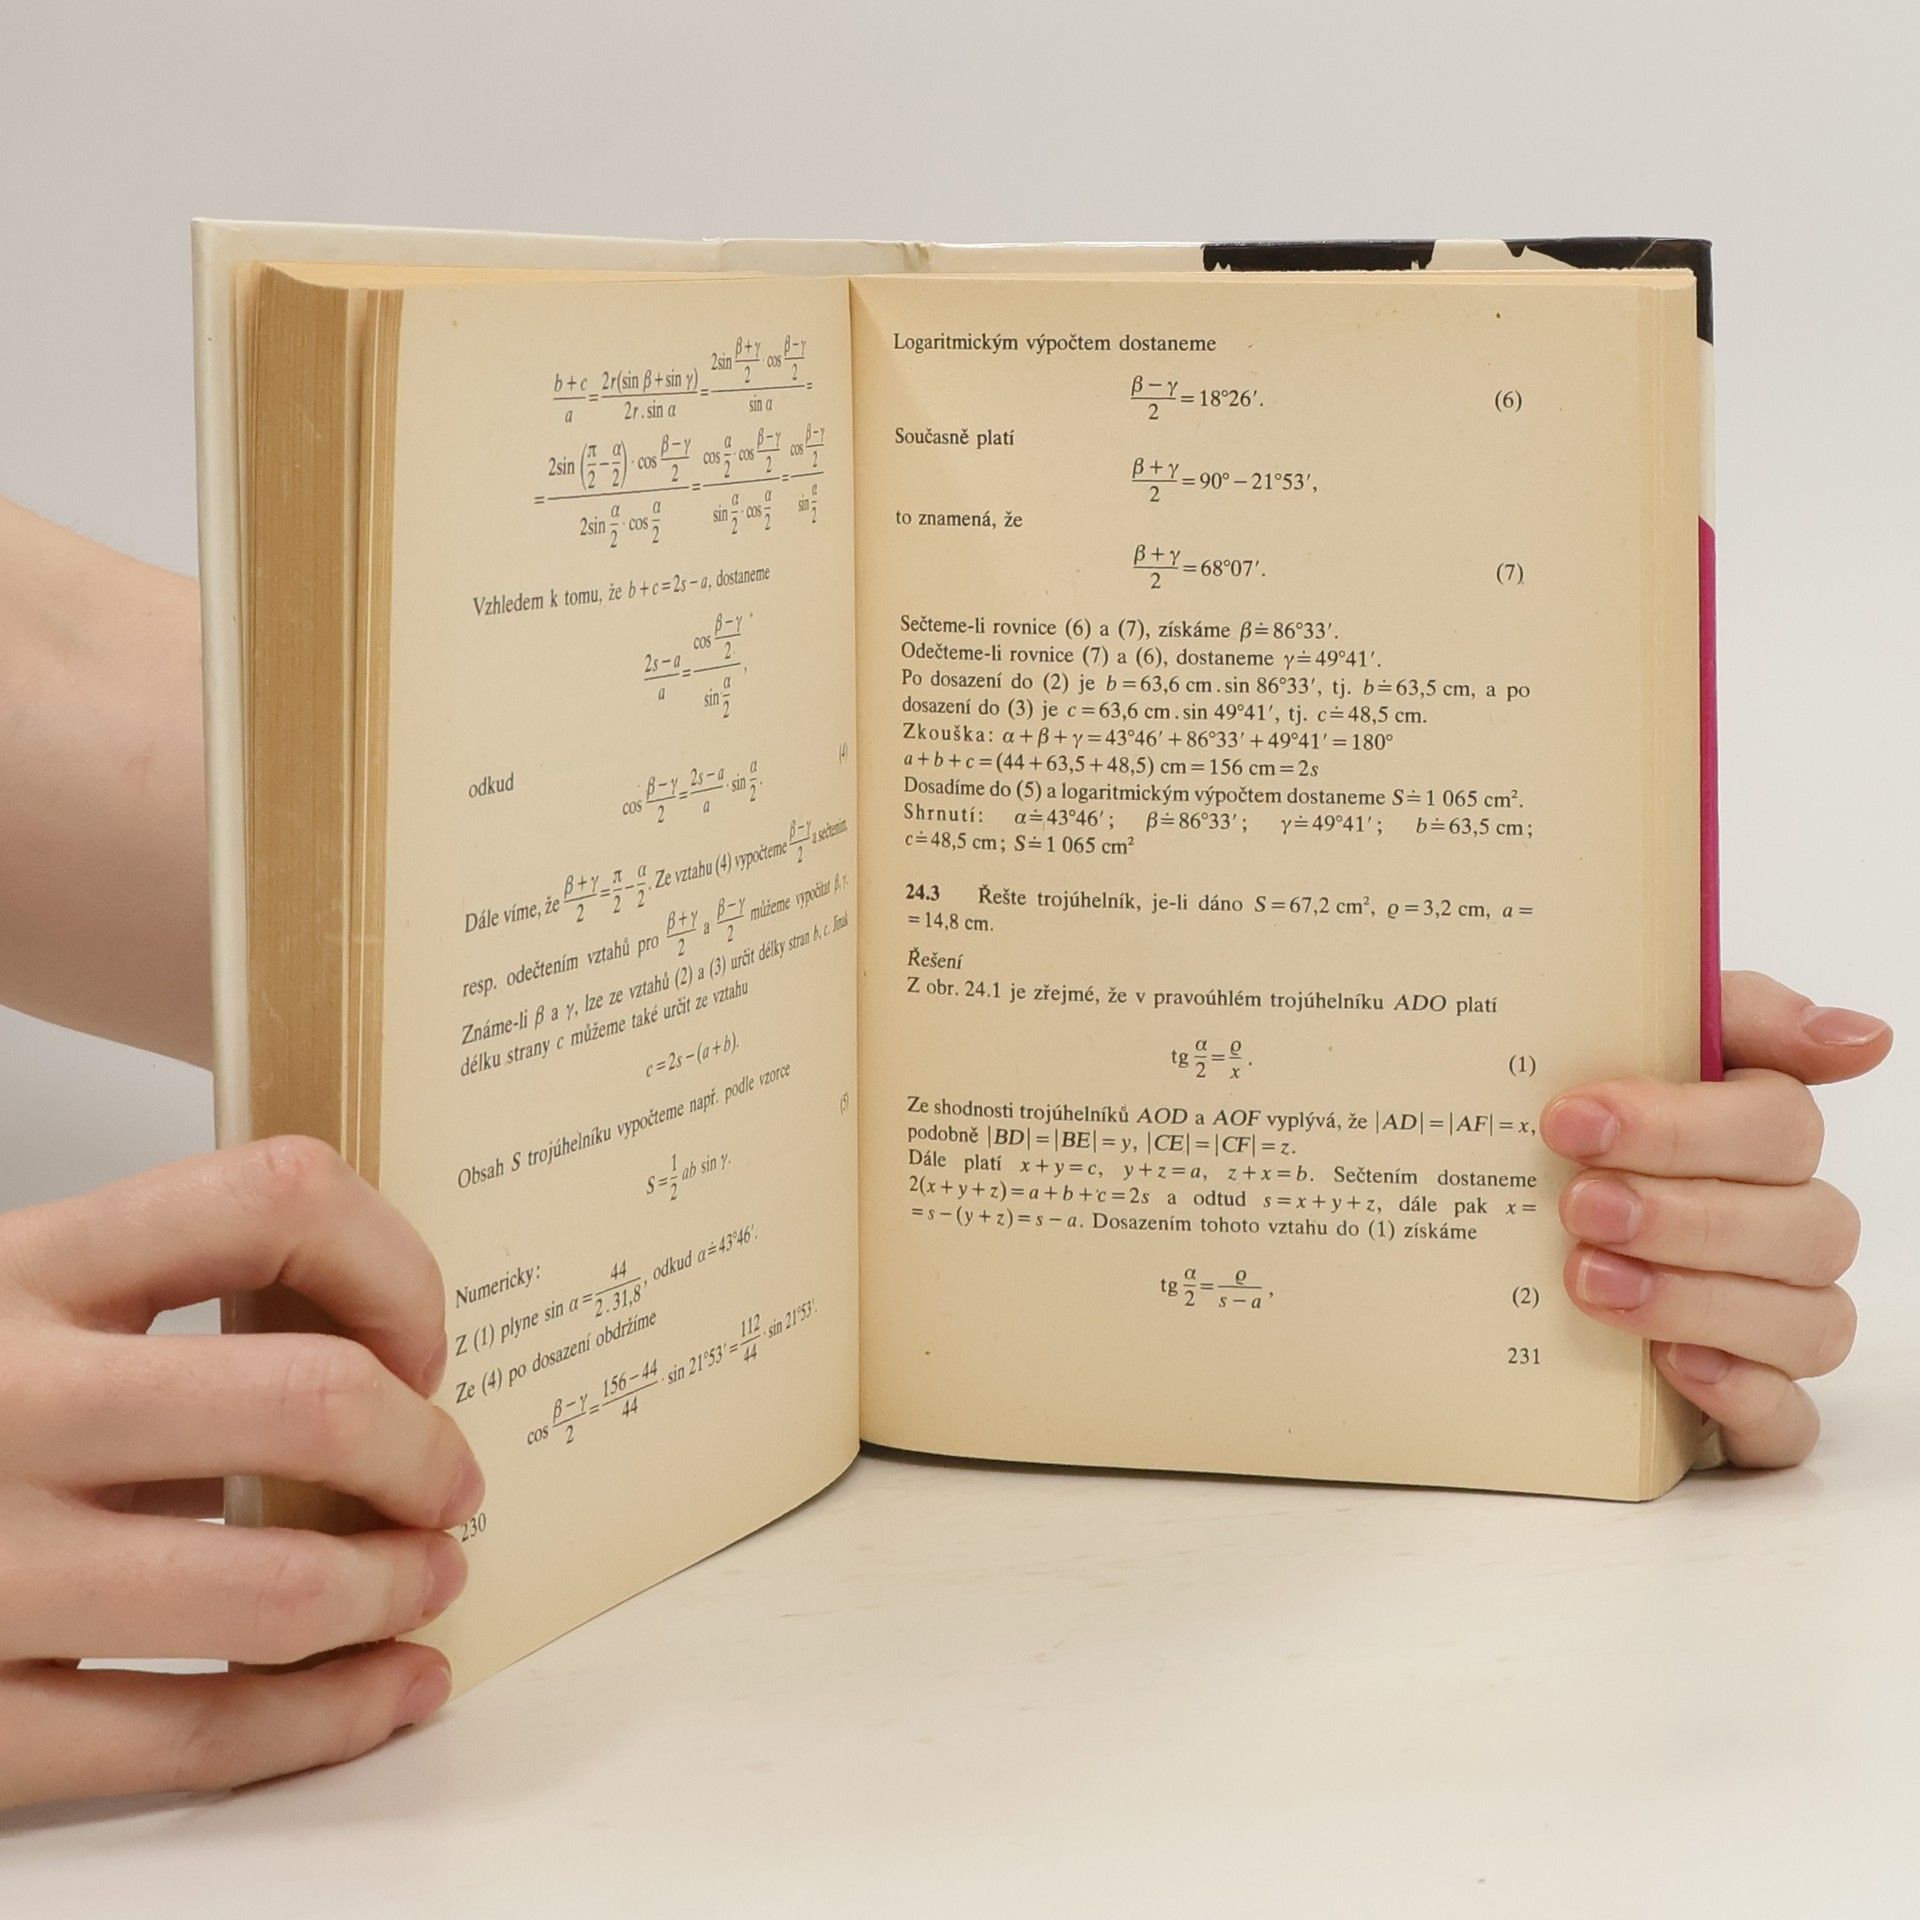 b+c/a = 2r(sin β+sin γ)/2r.sin α = 2sin (β+γ)/2 · cos (β−γ)/2 / sin α =
= 2sin (π/2 − α/2) · cos (β−γ)/2 / 2sin α/2 · cos α/2 = cos α/2 · cos (β−γ)/2 / sin α/2 · cos α/2 = cos (β−γ)/2 / sin α/2
Vzhledem k tomu, že b+c=2s−a, dostaneme
2s−a/a = cos (β−γ)/2 / sin α/2,
odkud
cos (β−γ)/2 = 2s−a/a · sin α/2. (4)
Dále víme, že (β+γ)/2 = π/2 − α/2. Ze vztahu (4) vypočteme (β−γ)/2 a sečtením
resp. odečtením vztahů pro (β+γ)/2 a (β−γ)/2 můžeme vypočítat β, γ.
Známe-li β a γ, lze ze vztahů (2) a (3) určit délky stran b, c. Jinak
délku strany c můžeme také určit ze vztahu
c=2s−(a+b).
Obsah S trojúhelníku vypočteme např. podle vzorce
S=1/2 ab sin γ. (5)
Numericky:
Z (1) plyne sin α = 44/2.31,8, odkud α≐43°46′.
Ze (4) po dosazení obdržíme
cos (β−γ)/2 = 156−44/44 · sin 21°53′ = 112/44 · sin 21°53′.
230
Logaritmickým výpočtem dostaneme
(β−γ)/2 = 18°26′. (6)
Současně platí
(β+γ)/2 = 90°−21°53′,
to znamená, že
(β+γ)/2 = 68°07′. (7)
Sečteme-li rovnice (6) a (7), získáme β≐86°33′.
Odečteme-li rovnice (7) a (6), dostaneme γ≐49°41′.
Po dosazení do (2) je b=63,6 cm.sin 86°33′, tj. b≐63,5 cm, a po
dosazení do (3) je c=63,6 cm.sin 49°41′, tj. c≐48,5 cm.
Zkouška: α+β+γ=43°46′+86°33′+49°41′=180°
a+b+c=(44+63,5+48,5) cm=156 cm=2s
Dosadíme do (5) a logaritmickým výpočtem dostaneme S≐1 065 cm².
Shrnutí: α≐43°46′; β≐86°33′; γ≐49°41′; b≐63,5 cm;
c≐48,5 cm; S≐1 065 cm²
24.3 Řešte trojúhelník, je-li dáno S=67,2 cm², ϱ=3,2 cm, a=
=14,8 cm.
Řešení
Z obr. 24.1 je zřejmé, že v pravoúhlém trojúhelníku ADO platí
tg α/2 = ϱ/x. (1)
Ze shodnosti trojúhelníků AOD a AOF vyplývá, že |AD|=|AF|=x,
podobně |BD|=|BE|=y, |CE|=|CF|=z.
Dále platí x+y=c, y+z=a, z+x=b. Sečtením dostaneme
2(x+y+z)=a+b+c=2s a odtud s=x+y+z, dále pak x=
=s−(y+z)=s−a. Dosazením tohoto vztahu do (1) získáme
tg α/2 = ϱ/s−a, (2)
231